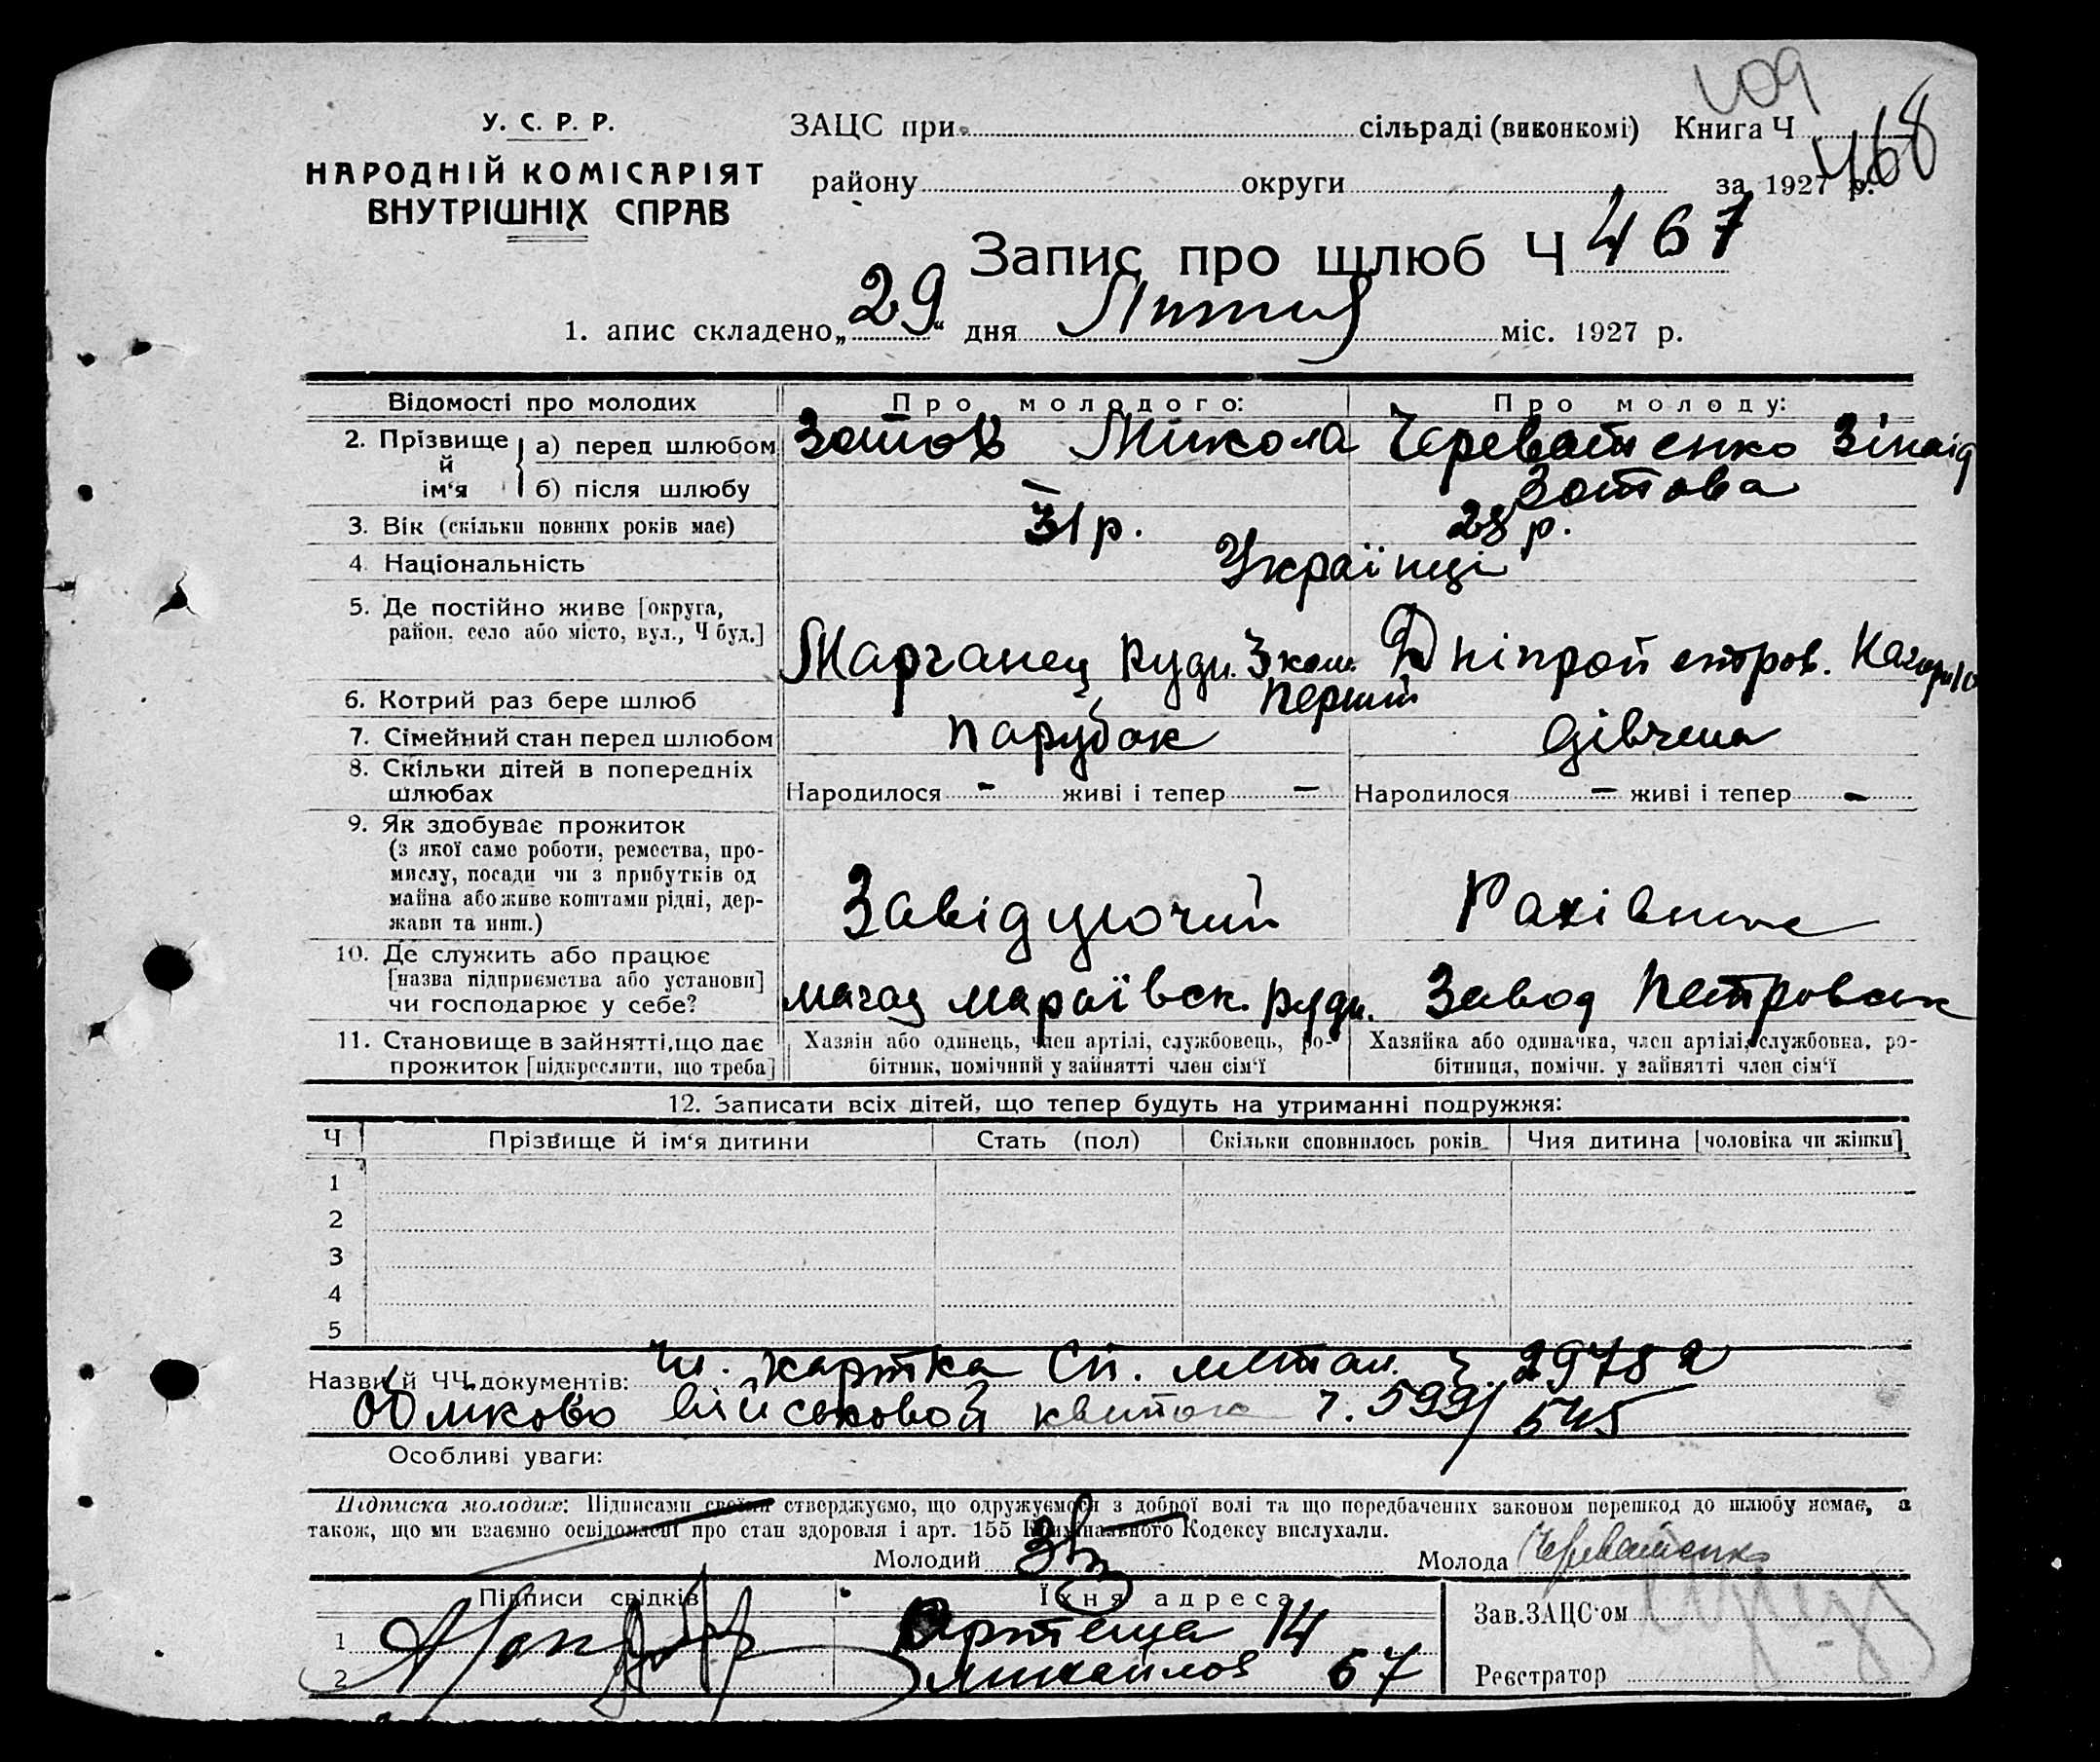 109
У. С. Р. Р.
НАРОДНІЙ КОМІСАРІЯТ
ВНУТРІШНІХ СПРАВ
ЗАЦС при сільраді (виконкомі) Книга Ч
468
району округи за 1927 р.
Запис про шлюб Ч 467
1. апис складено „29“ дня Липня міс. 1927 р.
Відомості про молодих Про молодого: Про молоду:
2. Прізвище й ім‘я а) перед шлюбом Зотов Микола Череватенко Зінаїд
б) після шлюбу — Зотова
3. Вік (скільки повних років має) 31 р. 28 р.
4. Національність Українці
5. Де постійно живе [округа,
район, село або місто, вул., Ч буд.]
Марганец Рудн. Дніпропетров.
6. Котрий раз бере шлюб Перший
7. Сімейний стан перед шлюбом парубок дівчина
8. Скільки дітей в попередніх
шлюбах Народилося - живі і тепер - Народилося - живі і тепер -
9. Як здобуває прожиток
(з якої само роботи, ремества, про-
мислу, посади чи з прибутків од
майна або живе коштами рідні, дер-
жави та инш.)
Завідуючий
10. Де служить або працює
[назва підприємства або установи]
чи господарює у себе?
рудн. Завод Петровськ
11. Становище в зайнятті, що дає
прожиток [підкреслити, що треба]
Хазяїн або одинець, член артілі, службовець, ро-
бітник, помічний у зайнятті член сім‘ї
Хазяйка або одиначка, член артілі, службовка, ро-
бітниця, помічн. у зайнятті член сім‘ї
12. Записати всіх дітей, що тепер будуть на утриманні подружжя:
Ч Прізвище й ім‘я дитини Стать (пол) Скільки сповнилось років Чия дитина [чоловіка чи жінки]
1
2
3
4
5
Назви й ЧЧ документів: Чл. картка Сп. метал. ч. 29782
військовой квиток ч. 599/545
Особливі уваги:
Підписка молодих: Підписами своїми стверджуємо, що одружуємося з доброї волі та що передбачених законом перешкод до шлюбу немає, а
також, що ми взаємно освідомлені про стан здоровля і арт. 155 Кримінального Кодексу вислухали.
Молодий Молода Череватенко
Підписи свідків Їхня адреса
Зав.ЗАЦС‘ом
1 Артема 14
2 67
Реєстратор